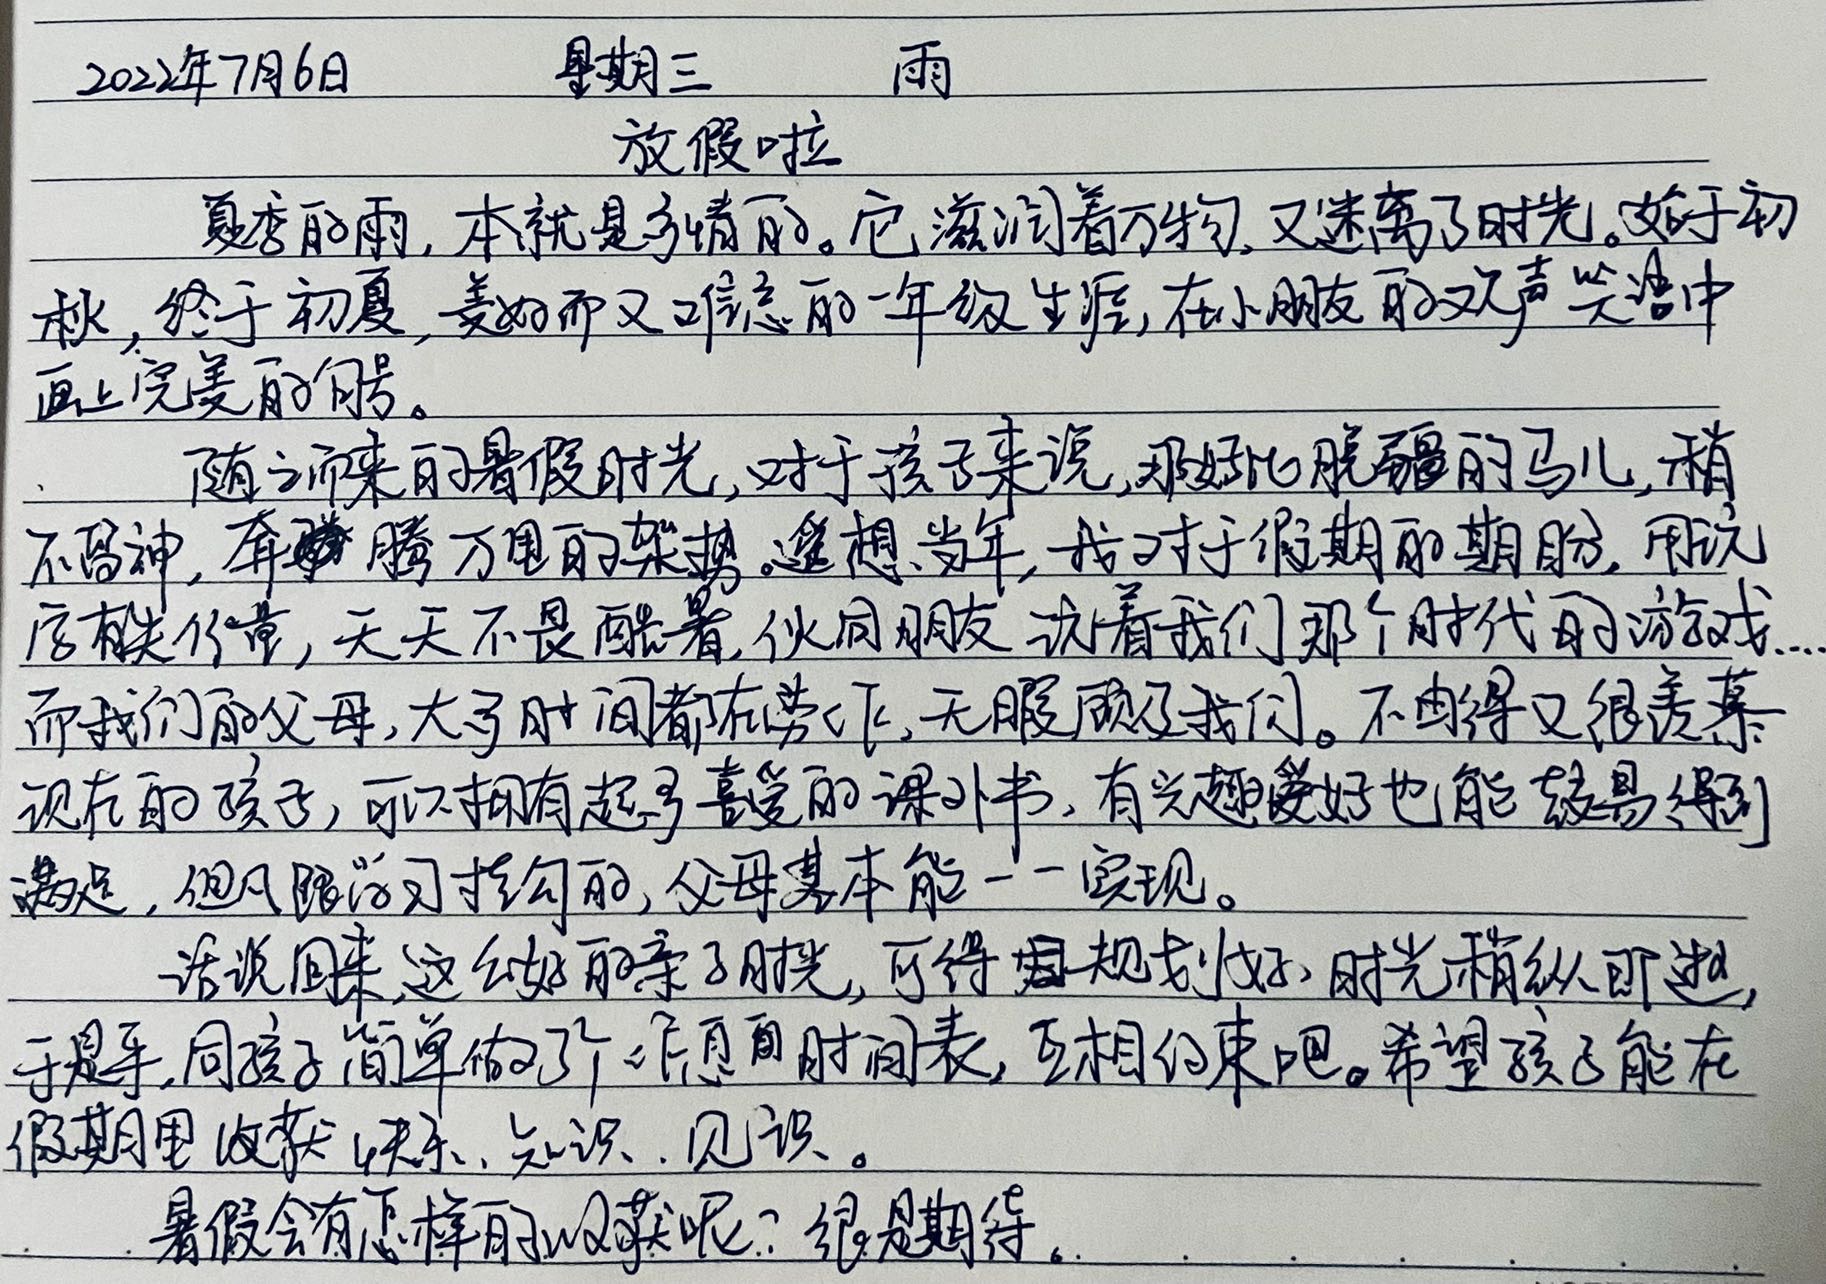 2022年7月6日 星期三 雨
放假啦
夏季的雨,本就是多情的。它滋润着万物,又迷离了时光。始于初
秋,终于初夏,美好而又难忘的一年级生涯,在小朋友的欢声笑语中
画上完美的句号。
随之而来的暑假时光,对于孩子来说,那好比脱疆的马儿,稍
不留神,奔腾万里的架势。遥想当年,我对于假期的期盼,用玩
店有失分量,天天不畏酷暑,伙同朋友玩着我们那个时代的游戏....
而我们的父母,大多时间都在劳作,无暇顾及我们。不由得又很羡慕
现在的孩子,可以拥有超多喜爱的课外书,有兴趣爱好也能轻易得到
满足,但凡跟学习挂勾的,父母基本能一一实现。
话说回来,这么好的亲子时光,可得规划好,时光稍纵即逝,
于是乎,同孩子简单做了个作息时间表,互相约束吧。希望孩子能在
假期里收获快乐、知识、见识。
暑假会有怎样的收获呢?很是期待。